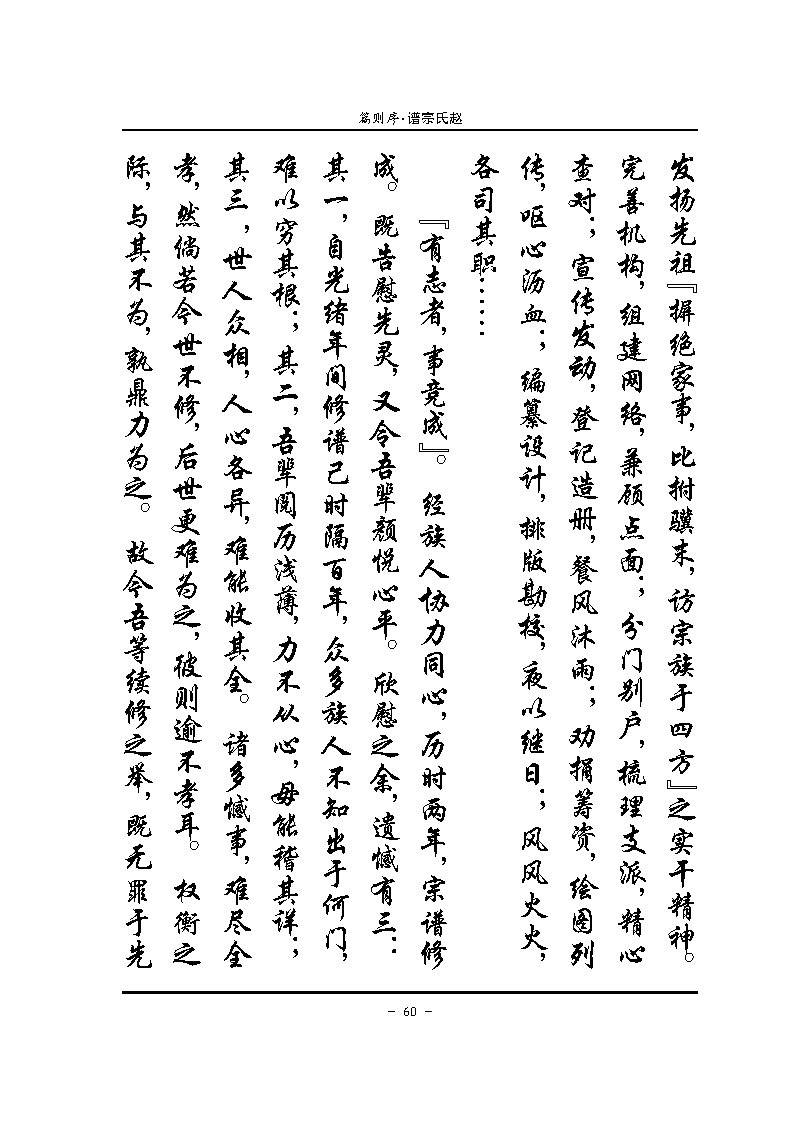 篇则序·谱宗氏赵
发扬先祖『摒绝家事，比拊骥末，访宗族于四方』之实干精神。
完善机构，组建网络，兼顾点面；分门别户，梳理支派，精心
查对；宣传发动，登记造册，餐风沐雨；劝捐筹资，绘图列
传，呕心沥血；编纂设计，排版勘校，夜以继日；风风火火，
各司其职……
『有志者，事竟成』。经族人协力同心，历时两年，宗谱修
成。既告慰先灵，又令吾辈颜悦心平。欣慰之余，遗憾有三：
其一，自光绪年间修谱已时隔百年，众多族人不知出于何门，
难以穷其根；其二，吾辈阅历浅薄，力不从心，毋能稽其详；
其三，世人众相，人心各异，难能收其全。诸多憾事，难尽全
孝，然倘若今世不修，后世更难为之，彼则逾不孝耳。权衡之
际，与其不为，孰鼎力为之。故今吾等续修之举，既无罪于先
- 60 -